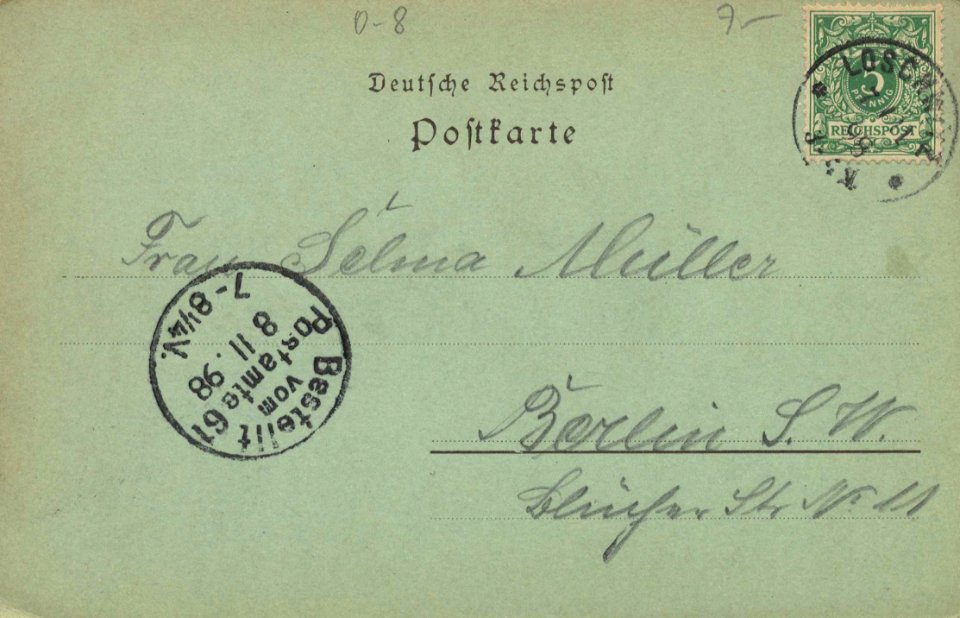 0-8
7-
Deutsche Reichspost
Postkarte
5
PFENNIG
REICHSPOST
LOSCHWITZ
7/11
98
Frau Selma Müller
Bestellt
vom
Postamte 61
8 11. 98
7-8¼V.
Berlin S. W.
Blücher Str. No 11